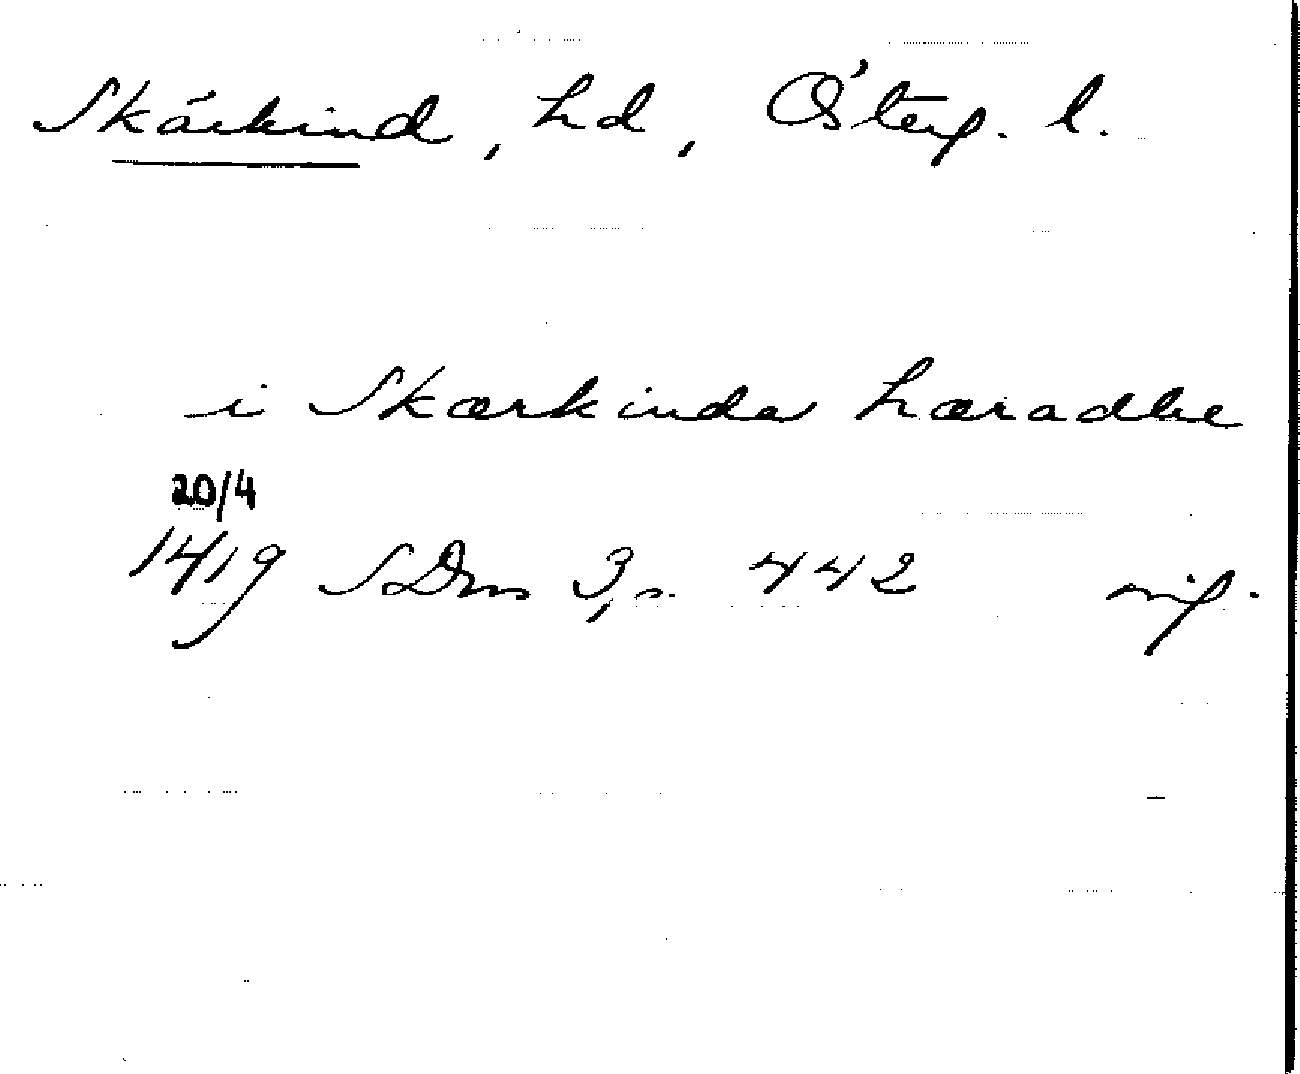 Skärkind, hd, Österg. l.
i Skærkinda hæradhe
20/4
1419 SDns 3, s. 442 orig.